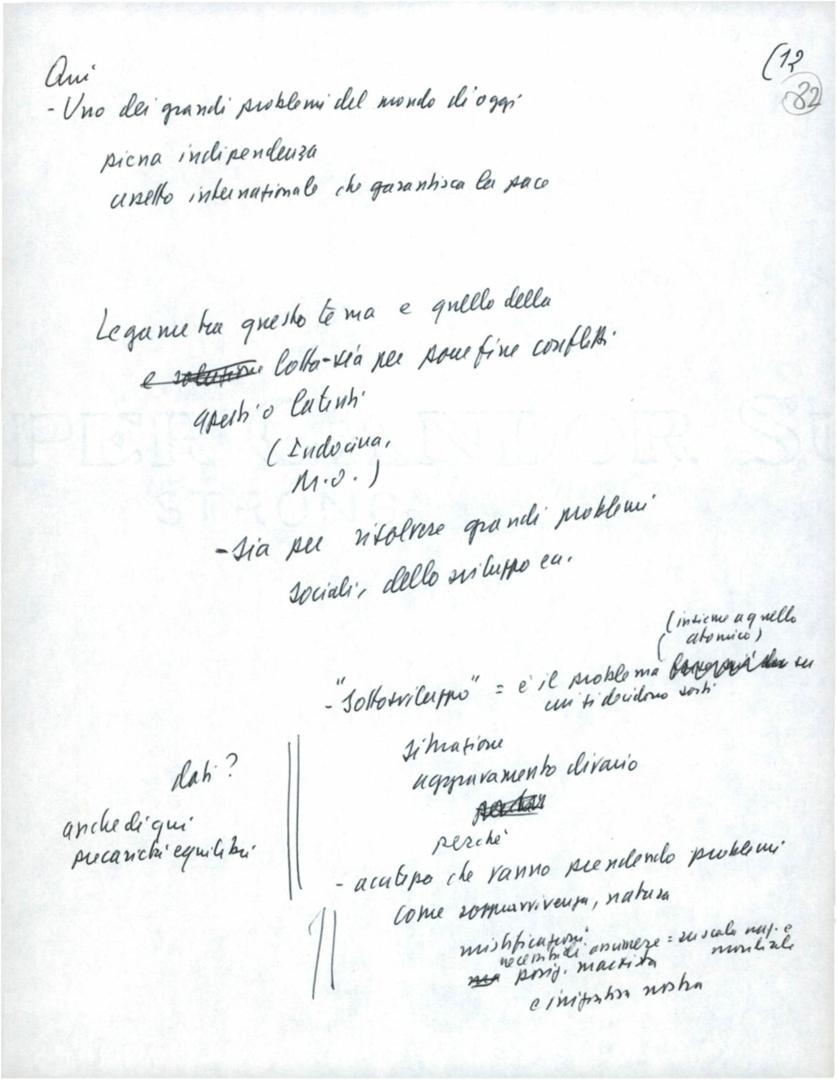 (12
82
Qui
- Uno dei grandi problemi del mondo di oggi
piena indipendenza
assetto internazionale che garantisca la pace
Legame tra questo tema e quello della
e soluzione lotta - sia per porre fine conflitti
aperti o latenti
(Indocina,
M.O.)
- sia per risolvere grandi problemi
sociali, dello sviluppo ecc.
(insieme a quello
atomico)
- "Sottosviluppo" = è il problema su
cui si decidono sorti
situazione
dati?
aggravamento divario
anche di qui
perché
precarietà equilibri
- acutezza che vanno prendendo problemi
come sopravvivenza, natura
mistificazioni
necessità di assumere = su scala naz. e
mondiale
posiz. marxista
e iniziativa nostra